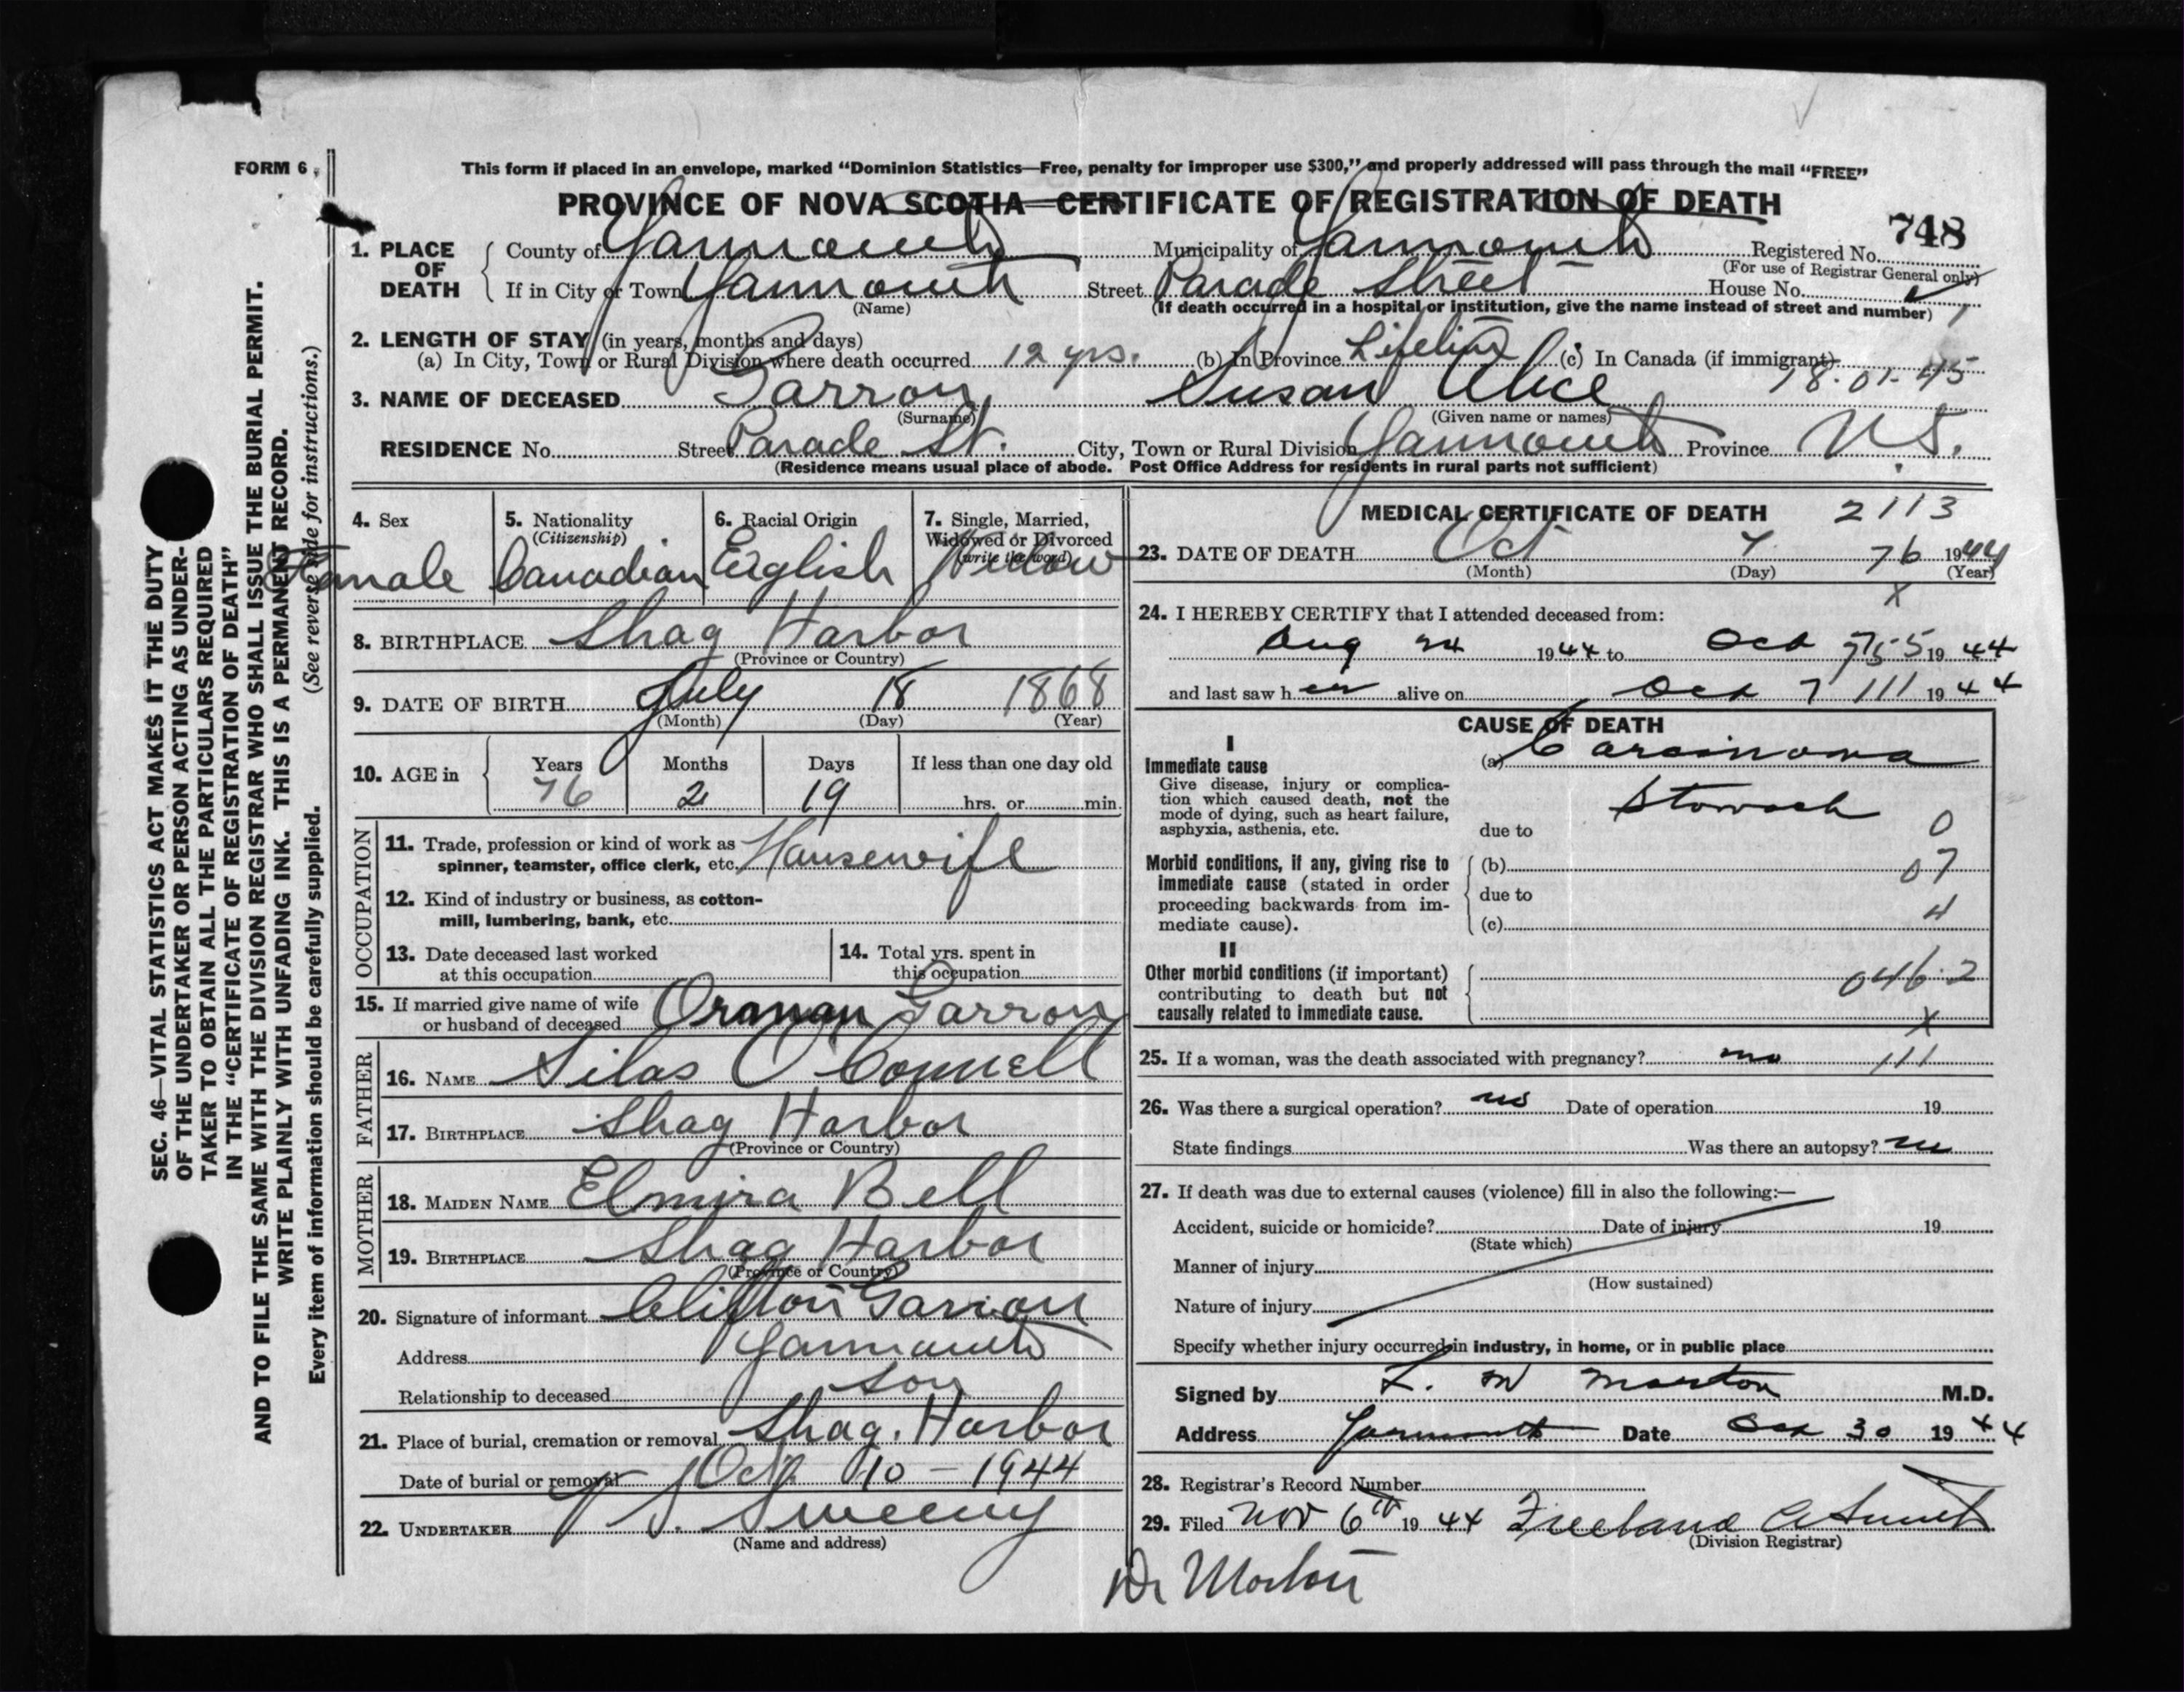 FORM 6
This form if placed in an envelope, marked "Dominion Statistics—Free, penalty for improper use $300," and properly addressed will pass through the mail "FREE"
PROVINCE OF NOVA SCOTIA—CERTIFICATE OF REGISTRATION OF DEATH
748
1. PLACE OF DEATH County of Yarmouth Municipality of Yarmouth Registered No.
(For use of Registrar General only)
If in City or Town Yarmouth Street Parade Street House No.
(Name) (If death occurred in a hospital or institution, give the name instead of street and number)
2. LENGTH OF STAY (in years, months and days)
(a) In City, Town or Rural Division where death occurred 12 yrs. (b) In Province Lifetime (c) In Canada (if immigrant)
18-01-45
3. NAME OF DECEASED Garron Susan Alice
(Surname) (Given name or names)
RESIDENCE No. Street Parade St. City, Town or Rural Division Yarmouth Province N.S.
(Residence means usual place of abode. Post Office Address for residents in rural parts not sufficient)
4. Sex Female
5. Nationality (Citizenship) Canadian
6. Racial Origin English
7. Single, Married, Widowed or Divorced (write the word) Widow
8. BIRTHPLACE Shag Harbor
(Province or Country)
9. DATE OF BIRTH July 18 1868
(Month) (Day) (Year)
10. AGE in Years Months Days If less than one day old
76 2 19 hrs. or min.
OCCUPATION
11. Trade, profession or kind of work as
spinner, teamster, office clerk, etc. Housewife
12. Kind of industry or business, as cotton-
mill, lumbering, bank, etc.
13. Date deceased last worked
at this occupation
14. Total yrs. spent in
this occupation
15. If married give name of wife
or husband of deceased Orman Garron
FATHER
16. NAME Silas O'Connell
17. BIRTHPLACE Shag Harbor
(Province or Country)
MOTHER
18. MAIDEN NAME Elmira Bell
19. BIRTHPLACE Shag Harbor
(Province or Country)
20. Signature of informant Clifton Garron
Address Yarmouth
Relationship to deceased Son
21. Place of burial, cremation or removal Shag. Harbor
Date of burial or removal Oct 10 - 1944
22. UNDERTAKER V S. Sweeny
(Name and address)
MEDICAL CERTIFICATE OF DEATH 2113
23. DATE OF DEATH Oct 7 76 1944
(Month) (Day) (Year)
x
24. I HEREBY CERTIFY that I attended deceased from:
Aug 24 1944 to Oct 7 1944
and last saw her alive on Oct 7 111 1944
CAUSE OF DEATH
I
Immediate cause
Give disease, injury or complica-
tion which caused death, not the
mode of dying, such as heart failure,
asphyxia, asthenia, etc.
(a) Carcinoma
Stomach
due to 0
Morbid conditions, if any, giving rise to
immediate cause (stated in order
proceeding backwards from im-
mediate cause).
(b) 07
due to
(c) 4
II
Other morbid conditions (if important)
contributing to death but not
causally related to immediate cause.
046.2
x
25. If a woman, was the death associated with pregnancy? no 111
26. Was there a surgical operation? no Date of operation 19
State findings Was there an autopsy? no
27. If death was due to external causes (violence) fill in also the following:—
Accident, suicide or homicide? Date of injury 19
(State which)
Manner of injury
(How sustained)
Nature of injury
Specify whether injury occurred in industry, in home, or in public place
Signed by L. M Morton M.D.
Address Yarmouth Date Oct 30 1944
28. Registrar's Record Number
29. Filed Nov 6th 1944 Freeland A Smith
(Division Registrar)
Dr Morton
SEC. 46—VITAL STATISTICS ACT MAKES IT THE DUTY
OF THE UNDERTAKER OR PERSON ACTING AS UNDER-
TAKER TO OBTAIN ALL THE PARTICULARS REQUIRED
IN THE "CERTIFICATE OF REGISTRATION OF DEATH"
AND TO FILE THE SAME WITH THE DIVISION REGISTRAR WHO SHALL ISSUE THE BURIAL PERMIT.
WRITE PLAINLY WITH UNFADING INK. THIS IS A PERMANENT RECORD.
Every item of information should be carefully supplied. (See reverse side for instructions.)